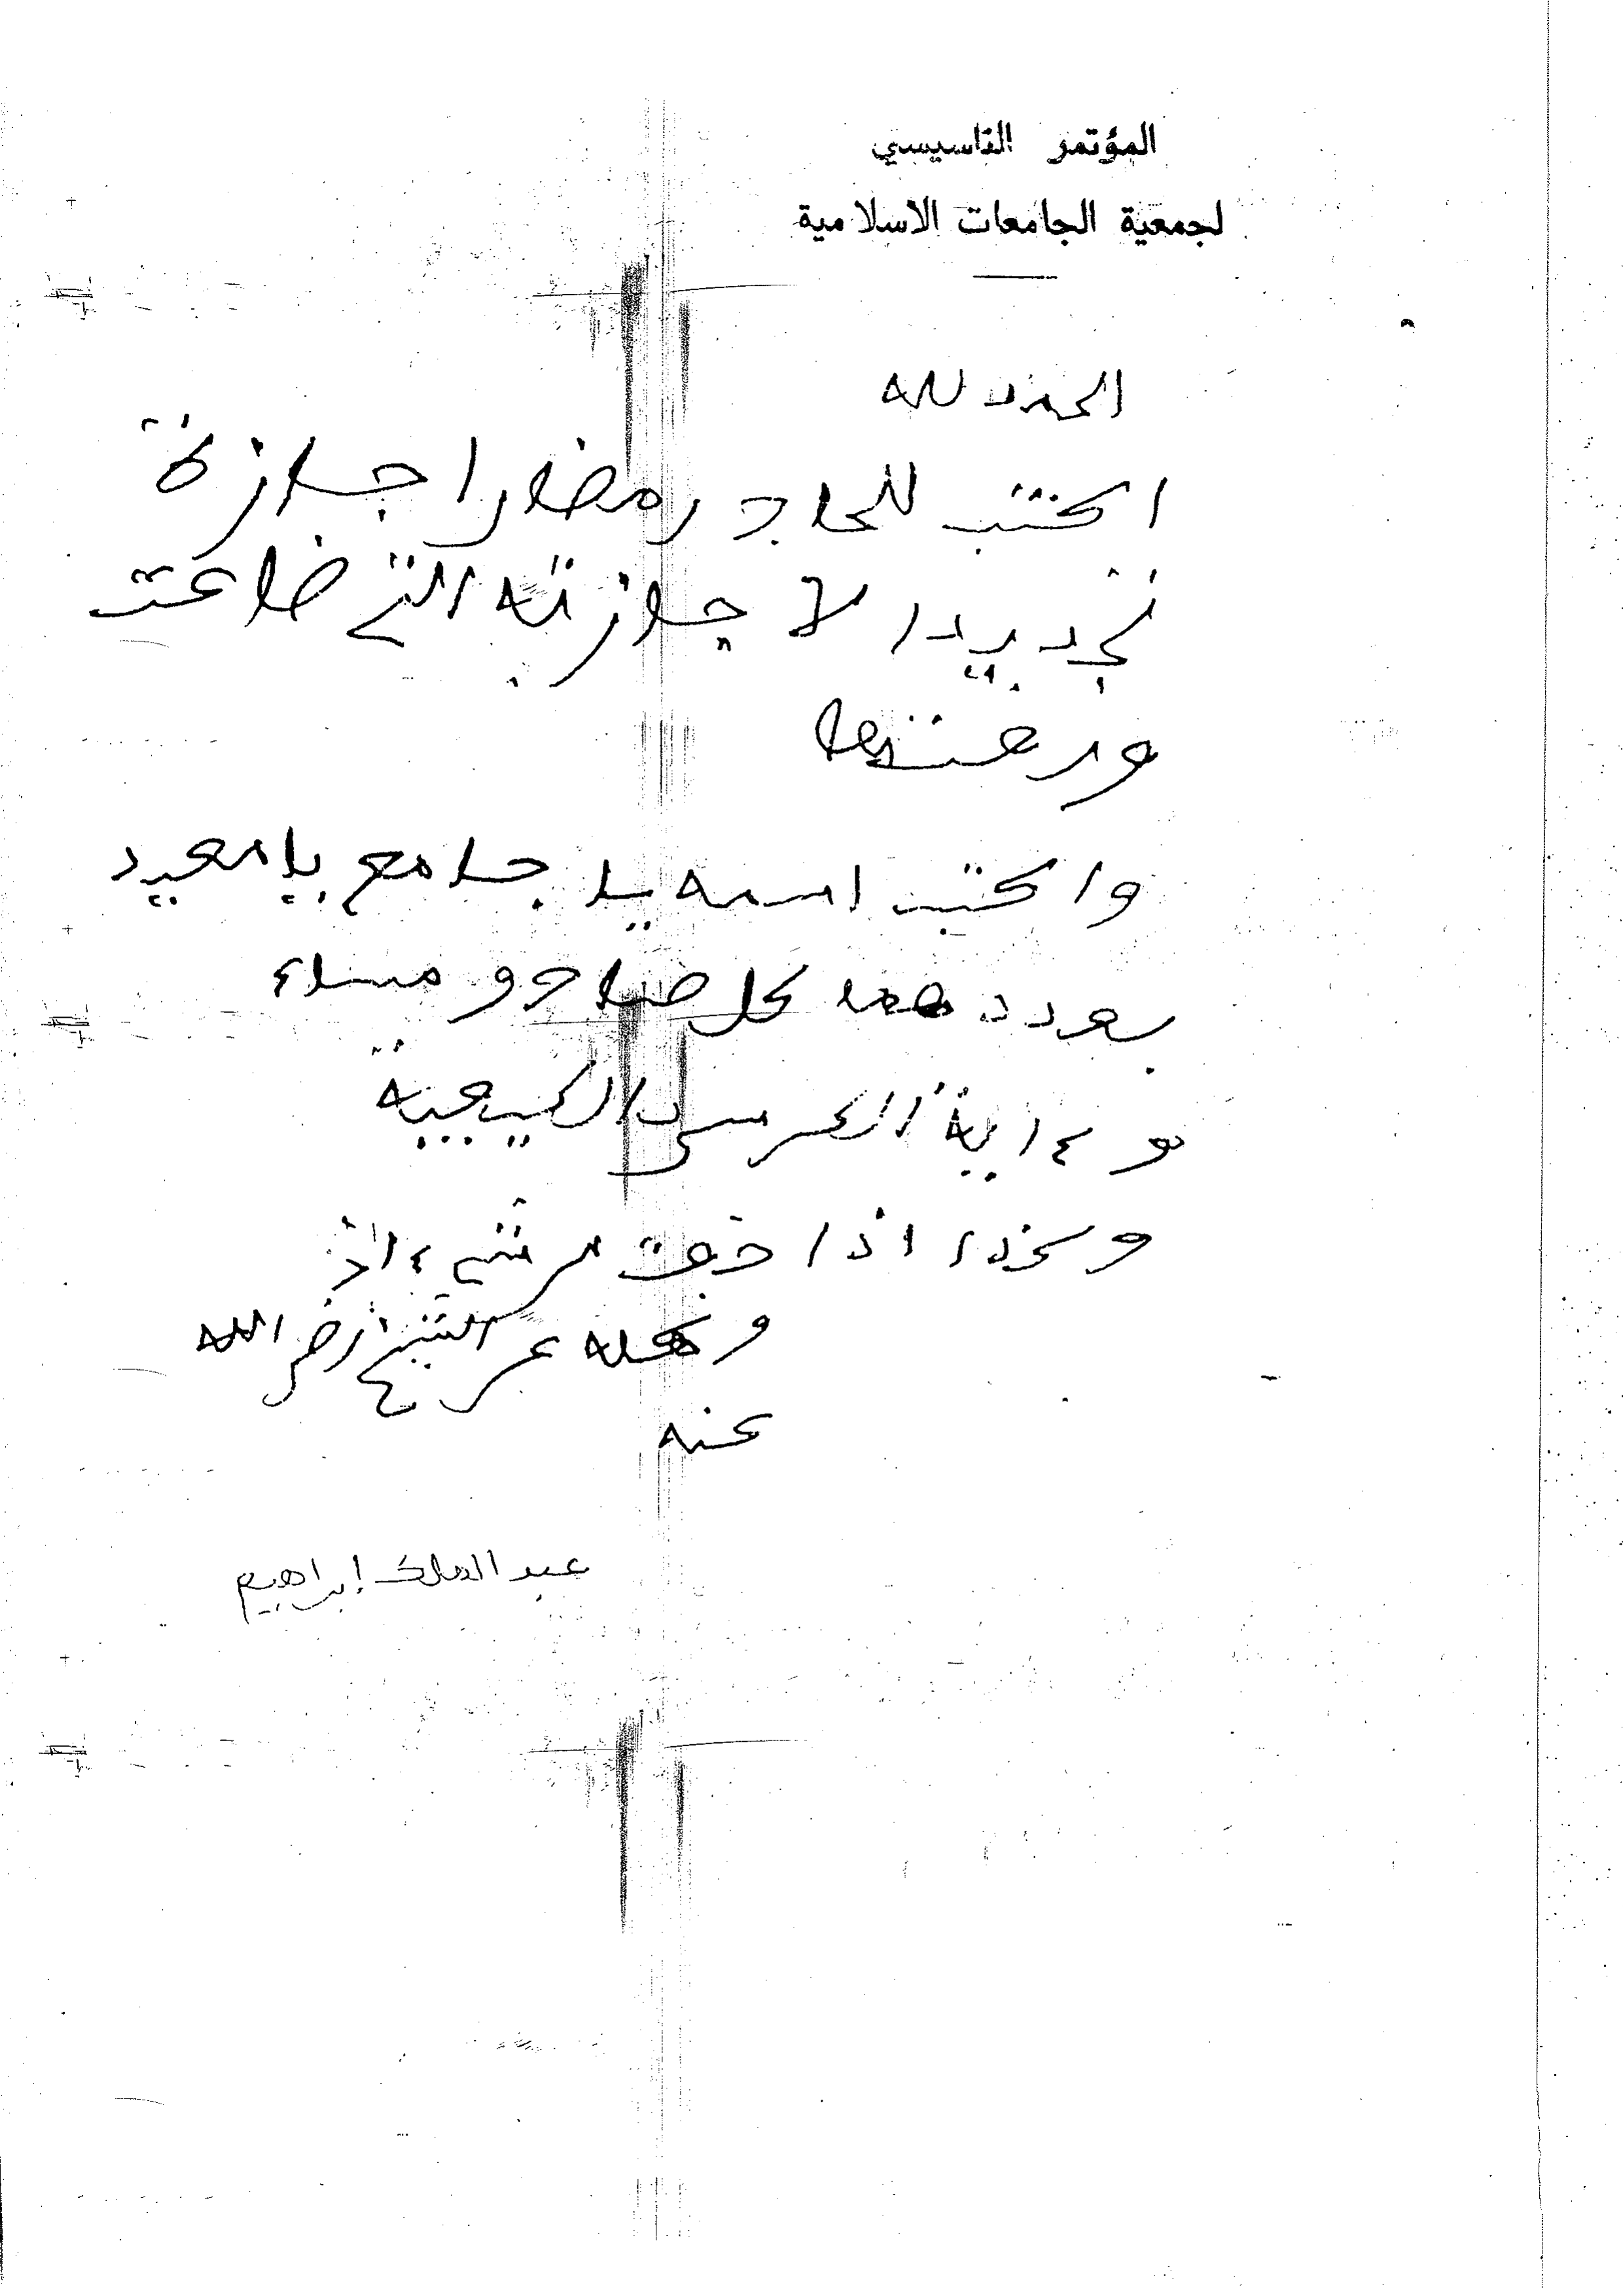 المؤتمر التاسيسي
لجمعية الجامعات الاسلامية
الحمد لله
اكتب للحاج رمضان اجازة
تجديدا لاجازته التى ضاعت
واكتب اسمه يا جامع يا معيد
بعدد كل صباح ومساء
اية الكرسى الكيفية
اذا خفت من شىء
عن الشيخ رضى الله
عنه
عبد الملك إبراهيم